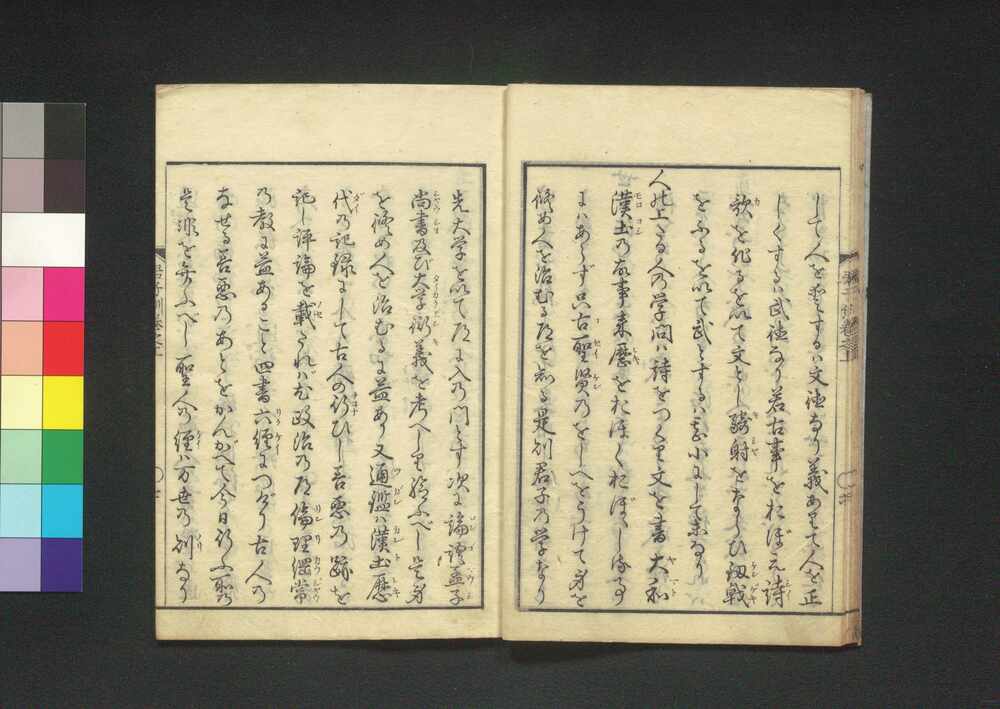 して人を愛するハ文徳なり義ありて人を正
しくするハ武徳なり若古事をおほえ詩
歌を作るを以て文とし騎射をならひ劔戟
をふるを以て武とするハ至小にして末なり
人の上たる人の学問ハ詩をつくり文を書大和
漢土の故事来歴をおほくおぼへしる事
にハあらず只古聖賢のをしへをうけて身を
脩め人を治むる道を知る是則君子の学なり
先大学を以て道に入の門とす次に論語孟子
尚書及び大学衍義を考へしり給ふべし是身
を脩め人を治むるに益あり又通鑑ハ漢土歴
代の記録にして古人の行ひし善悪の跡を
記し評論を載されバ政治の道倫理綱常
の教に益あること四書六經につぎり古人の
なせる善悪のあとをかんがへて今日行ふ所の
是非を弁ふべし聖人の經ハ万世の則なり
君子訓巻之上